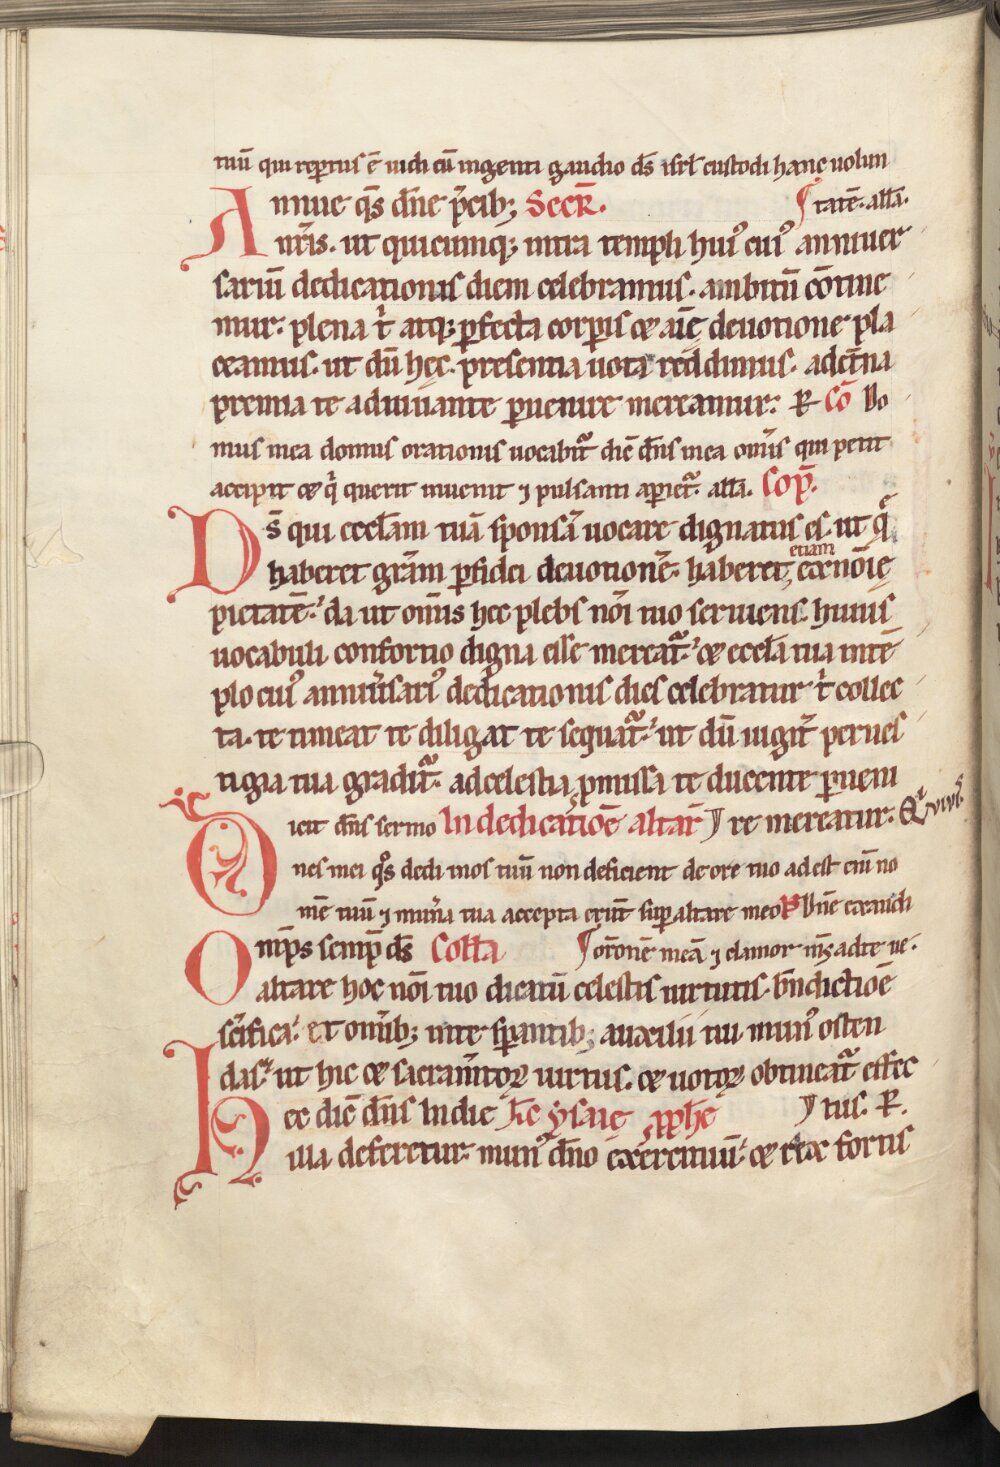 tuū qui reptus ē uidi cū ingenti gaudio ds̄ isrl̄ custodi hanc uolun
Annue qs̄ dn̄e p̄cib; Secr̄. tatē. alla̅.
nr̄is. ut quicunq; intra templi hui᾽ cui᾽ anniuer
sariū dedicationis diem celebramus. ambitū cōtine
mur. plena t̄ atq; pfecta corpis & aīę deuotione pla
ceamus. ut dū hęc presentia uota reddimus. ad et̄na
premia te adiuuante puenire mereamur. R Cō Do
mus mea domus orationis uocabit᾽ dic̄ dn̄s in ea omīs qui petit
accipit & q̄ querit inuenit ⁊ pulsanti apiet᾽. alla̅. Cop̄.
Ds̄ qui eccl̄am tuā sponsā uocare dignatus es. ut quę
haberet grām p fidei deuotionē. haberet etiam ex nōīe
pietatē. da ut om̄is hec plebs nōi tuo seruiens. huius
uocabuli consortio digna esse mereat᾽. & eccl̄a tua in tē
plo cui᾽ anniu̅sari᾽ dedicationis dies celebratur t̄ collec
ta. te timeat te diligat te sequat᾽. ut dū iugit̄ per ues
tigia tua gradit᾽. ad celestia pmissa te ducente pueni
Dicit dn̄s sermo In dedicatiōe altar̄ re mereatur. Q̇ viuis̄.
nes mei q᾽s dedi in os tuū non deficient de ore tuo adest eni̅ no
mē tuū ⁊ mun̄a tua accepta erūt sup altare meo P Dn̄e exaudi
Omps semp̄ ds̄ Coll̄a or̄onē meā ⁊ clamor m̄s ad te ue.
altare hoc nōi tuo dicatū celestis uirtutis bn̄dictiōe
sc̄ifica. et omīb; in te spantib; auxilii tui mun᾽ osten
das. ut hic & sacram̄toꝝ uirtus. & uotoꝝ obtineat᾽ effec
Hec dic̄ dn̄s In die Lc̄ ysaię pphē tus. R.
illa deferetur mun᾽ dn̄o exercituū. & rex fortis